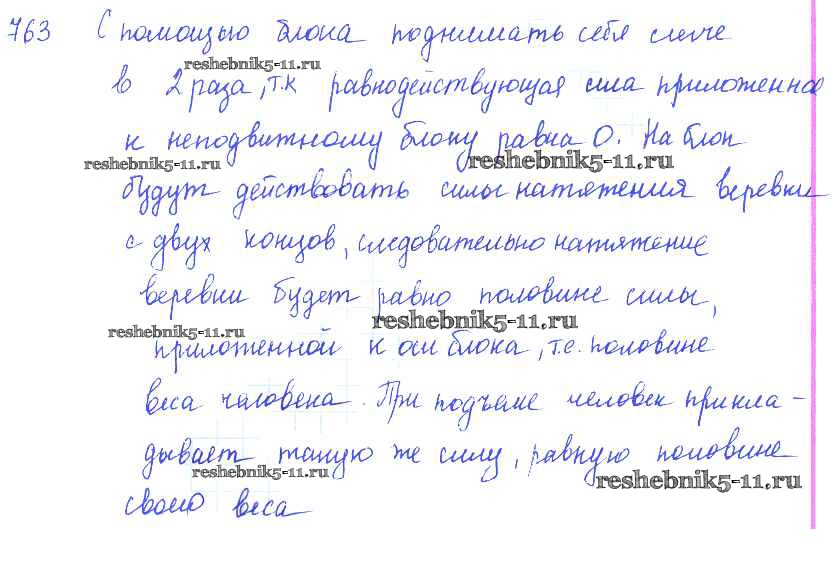 763 С помощью блока поднимать себя легче
reshebnik5-11.ru
в 2 раза, т.к равнодействующая сила приложенная
к неподвижному блоку равна 0. На блок
reshebnik5-11.ru reshebnik5-11.ru
будут действовать силы натяжения веревки
с двух концов, следовательно натяжение
веревки будет равно половине силы,
reshebnik5-11.ru reshebnik5-11.ru
приложенной к оси блока, т.е. половине
веса человека. При подъеме человек прикла-
дывает такую же силу, равную половине
reshebnik5-11.ru reshebnik5-11.ru
своего веса